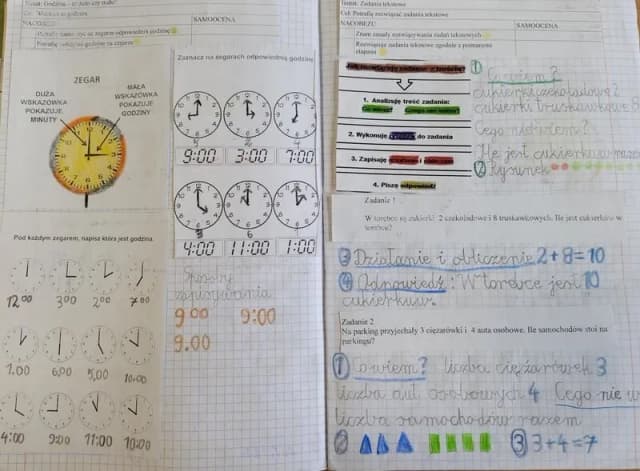 Temat: Godzina – to dużo czy mało?
NACOBEZU:
SAMOOCENA
ZEGAR
DUŻA
WSKAZÓWKA
POKAZUJE
MINUTY
MAŁA
WSKAZÓWKA
POKAZUJE
GODZINY
Pod każdym zegarem, napisz która jest godzina.
12 00 3 00 2 00 7 00
1.00 6.00 5.00 10.00
4:00 9:00 11:00 10:00
Zaznacz na zegarach odpowiednią godzinę
9:00 3:00 7:00
4:00 11:00 1:00
Sposoby
zapisywania
9 00 9:00
9.00
Temat: Zadania tekstowe
Cel: Potrafię rozwiązać zadania tekstowe
NACOBEZU:
SAMOOCENA
Znam zasady rozwiązywania zadań tekstowych
Rozwiązuję zadania tekstowe zgodnie z poznanymi
etapami
1. Analizuję treść zadania:
2. Wykonuję rysunek do zadania
3. Zapisuję
4. Piszę odpowiedź
① Co wiem?
cukierki czekoladowe 2
cukierki truskawkowe 8
Czego nie wiem?
Ile jest cukierków razem
② Rysunek
Zadanie 1
W torebce są cukierki: 2 czekoladowe i 8 truskawkowych. Ile jest cukierków w
torebce?
③ Działanie i obliczenie 2+8=10
④ Odpowiedź: W torebce jest 10
cukierków.
Zadanie 2
Na parking przyjechały 3 ciężarówki i 4 auta osobowe. Ile samochodów stoi na
parkingu?
① Co wiem? liczba ciężarówek 3
liczba aut osobowych 4 Czego nie w
liczba samochodów razem
② ③ 3+4=7